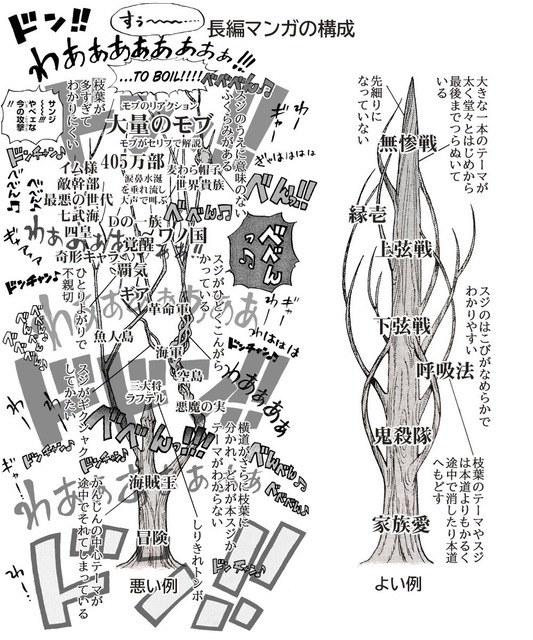 長編マンガの構成
ドン!!
すぅ〜
わあああああああぁぁ!!!
...TO BOIL!!!!
べべべん♪
枝葉が
多すぎて
わかりにくい
サンジ
やべェな
今の攻撃
モブのリアクション
大量のモブ
モブがセリフで解説
405万部
涙鼻水涎
を垂れ流し
大声で叫ぶ
麦わら帽子
世界貴族
スジのうえに意味のない
ふくらみがある
ギャー
ははははは
べんべん♪
べべん!!
ドンチャン♪
イム様
敵幹部
最悪の世代
七武海
四皇
奇形キャラ
Dの一族
覚醒
覇気
ギア
ワノ国
革命軍
魚人島
海軍
空島
三大将
ラフテル
悪魔の実
スジがひどくこんがら
かっている
ひとりよがりで
不親切
スジがギクシャク
してかたい
ドンチャン♪
わああああ
ドドン!!
べべんっ!!!
横道がさらに枝葉に
分かれ、どれが本スジか
テーマがわからない
かんじんの中心テーマが
途中でそれてしまっている
しりきれトンボ
海賊王
冒険
悪い例
大きな一本のテーマが
太く堂々とはじめから
最後までつらぬいて
いる
先細りに
なっていない
無惨戦
縁壱
上弦戦
スジのはこびがなめらかで
わかりやすい
下弦戦
呼吸法
鬼殺隊
枝葉のテーマやスジ
は本道よりもかるく
途中で消したり本道
へもどす
家族愛
よい例